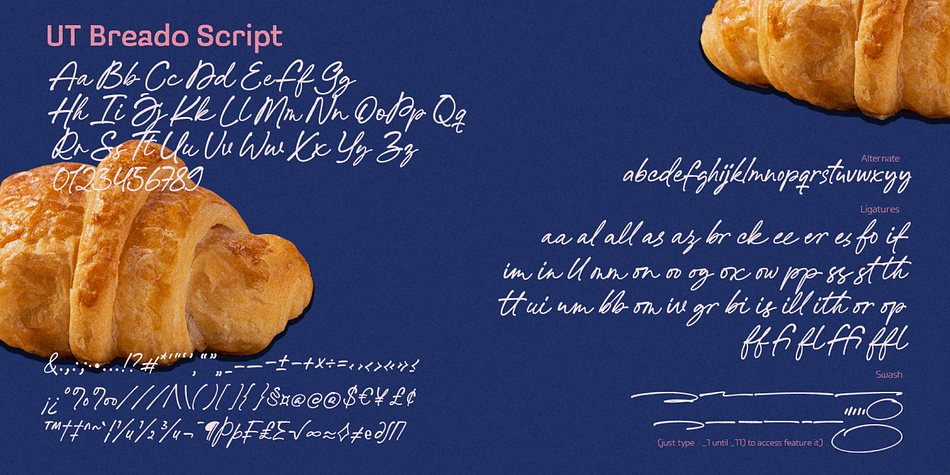 UT Breado Script
Aa Bb Cc Dd Ee Ff Gg
Hh Ii Jj Kk Ll Mm Nn Oo Pp Qq
Rr Ss Tt Uu Vv Ww Xx Yy Zz
0123456789
Alternate
abcdefghijklmnopqrstuvwxyy
Ligatures
aa al all as az br ck ee er es fo if
im in ll mm on oo og ox ow pp ss st th
tt ui um bb om iw gr bi is ill ith or op
ff fi fl ffi ffl
&.,:;•…!?#
¡¿°%‰///^\\()[]{}§¤@@@$€¥£¢
Swash
(just type : _1 until _11) to access feature it)